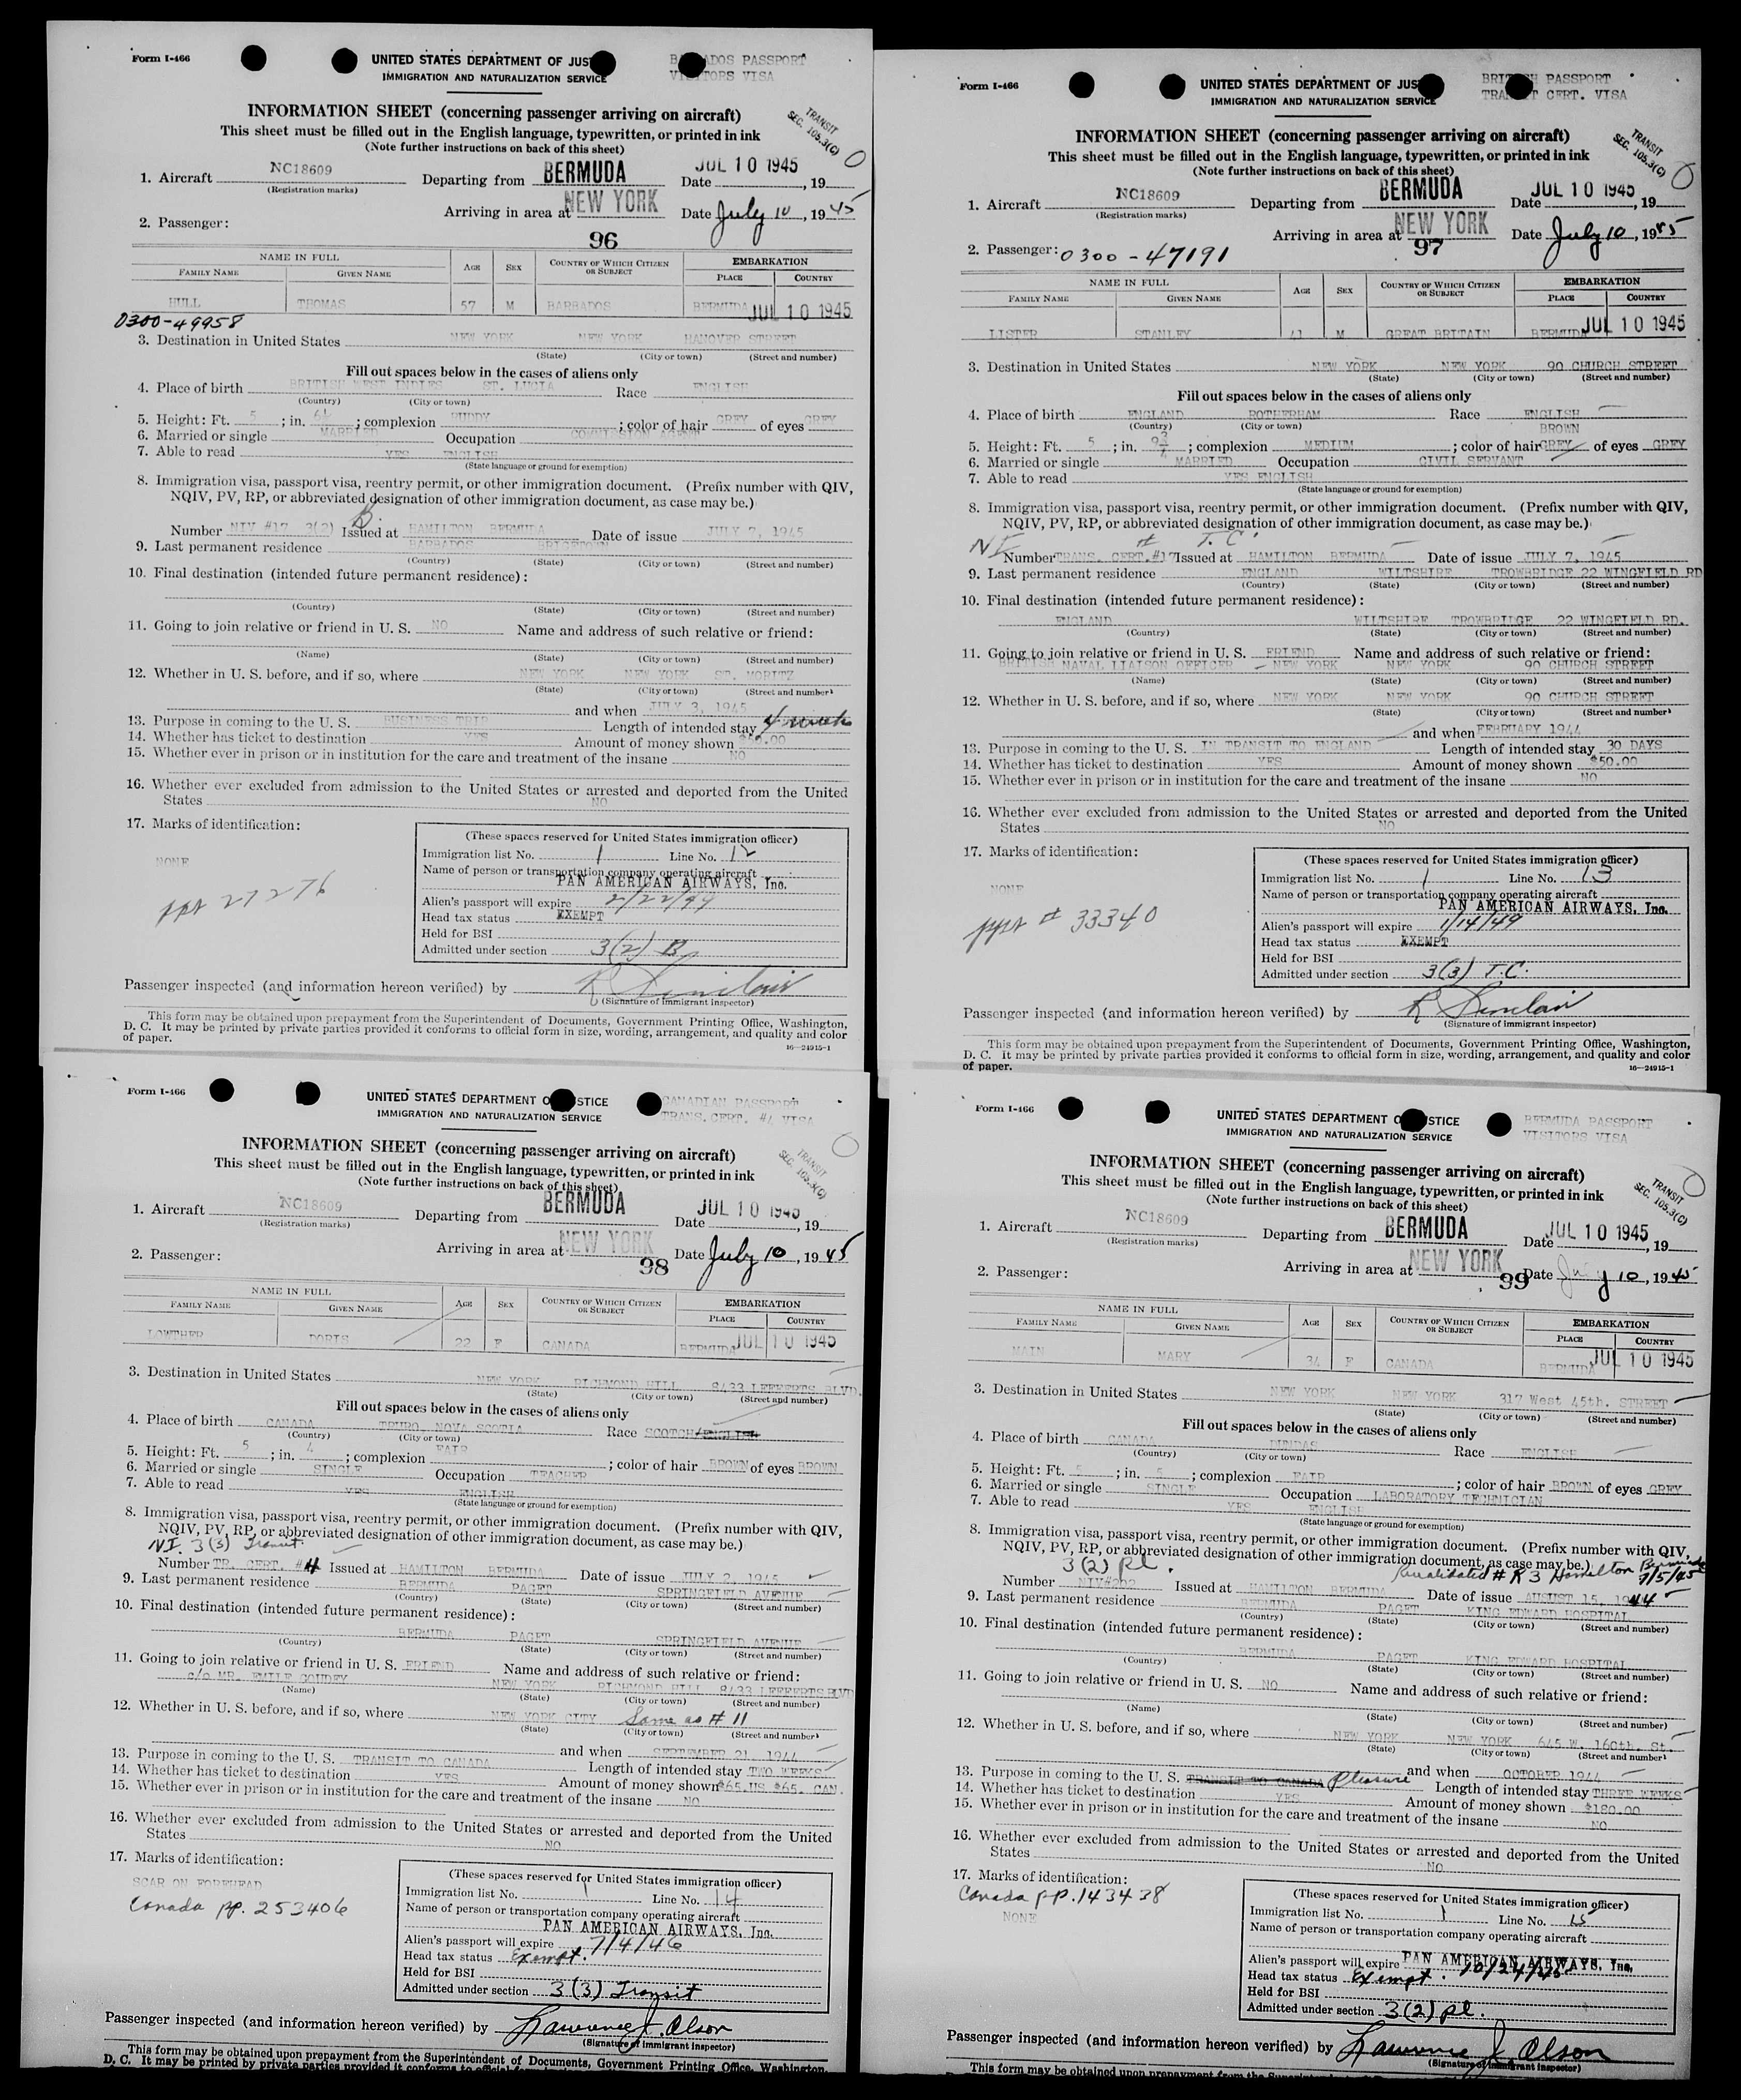 Form I-466
UNITED STATES DEPARTMENT OF JUS
IMMIGRATION AND NATURALIZATION SERVICE
B ADOS PASSPORT
VISITORS VISA
INFORMATION SHEET (concerning passenger arriving on aircraft)
This sheet must be filled out in the English language, typewritten, or printed in ink
(Note further instructions on back of this sheet)
TRANSIT
SEC. 105.3(C)
1. Aircraft NC18609 Departing from BERMUDA Date JUL 10 1945, 19
(Registration marks)
Arriving in area at NEW YORK Date July 10, 1945
2. Passenger:
96
NAME IN FULL
FAMILY NAME GIVEN NAME AGE SEX COUNTRY OF WHICH CITIZEN OR SUBJECT EMBARKATION
PLACE COUNTRY
HULL THOMAS 57 M BARBADOS BERMUDA JUL 10 1945
0300-49958
3. Destination in United States NEW YORK NEW YORK HANOVER STREET
(State) (City or town) (Street and number)
Fill out spaces below in the cases of aliens only
4. Place of birth BRITISH WEST INDIES ST. LUCIA Race ENGLISH
(Country) (City or town)
5. Height: Ft. 5; in. 6½; complexion RUDDY; color of hair GREY of eyes GREY
6. Married or single MARRIED Occupation COMMISSION AGENT
7. Able to read YES ENGLISH
(State language or ground for exemption)
8. Immigration visa, passport visa, reentry permit, or other immigration document. (Prefix number with QIV,
NQIV, PV, RP, or abbreviated designation of other immigration document, as case may be.)
B.
Number NIV #17 3(2) Issued at HAMILTON BERMUDA Date of issue JULY 7, 1945
9. Last permanent residence BARBADOS BRIGETOWN
(Country) (State) (City or town) (Street and number)
10. Final destination (intended future permanent residence):
(Country) (State) (City or town) (Street and number)
11. Going to join relative or friend in U. S. NO Name and address of such relative or friend:
(Name) (State) (City or town) (Street and number)
12. Whether in U. S. before, and if so, where NEW YORK NEW YORK ST. MORITZ
(State) (City or town) (Street and number)
and when JULY 3, 1945
13. Purpose in coming to the U. S. BUSINESS TRIP Length of intended stay 4
14. Whether has ticket to destination YES Amount of money shown $50.00
15. Whether ever in prison or in institution for the care and treatment of the insane NO
16. Whether ever excluded from admission to the United States or arrested and deported from the United
States NO
17. Marks of identification:
NONE
ppt 27276
(These spaces reserved for United States immigration officer)
Immigration list No. 1 Line No. 12
Name of person or transportation company operating aircraft
PAN AMERICAN AIRWAYS, Inc.
Alien's passport will expire 2/22/
Head tax status EXEMPT
Held for BSI
Admitted under section 3(2) B
Passenger inspected (and information hereon verified) by R Sinclair
(Signature of immigrant inspector)
This form may be obtained upon prepayment from the Superintendent of Documents, Government Printing Office, Washington,
D. C. It may be printed by private parties provided it conforms to official form in size, wording, arrangement, and quality and color
of paper.
16—24915-1
Form I-466
UNITED STATES DEPARTMENT OF JUS
IMMIGRATION AND NATURALIZATION SERVICE
BRIT H PASSPORT
TRA T CERT. VISA
INFORMATION SHEET (concerning passenger arriving on aircraft)
This sheet must be filled out in the English language, typewritten, or printed in ink
(Note further instructions on back of this sheet)
TRANSIT
SEC. 105.3(C)
1. Aircraft NC18609 Departing from BERMUDA Date JUL 10 1945, 19
(Registration marks)
Arriving in area at NEW YORK Date July 10, 1945
2. Passenger: 0300-47191
97
NAME IN FULL
FAMILY NAME GIVEN NAME AGE SEX COUNTRY OF WHICH CITIZEN OR SUBJECT EMBARKATION
PLACE COUNTRY
LISTER STANLEY 41 M GREAT BRITAIN BERMUDA JUL 10 1945
3. Destination in United States NEW YORK NEW YORK 90 CHURCH STREET
(State) (City or town) (Street and number)
Fill out spaces below in the cases of aliens only
4. Place of birth ENGLAND ROTHERHAM Race ENGLISH
(Country) (City or town)
BROWN
5. Height: Ft. 5; in. 9¾; complexion MEDIUM; color of hair GREY of eyes GREY
6. Married or single MARRIED Occupation CIVIL SERVANT
7. Able to read YES ENGLISH
(State language or ground for exemption)
8. Immigration visa, passport visa, reentry permit, or other immigration document. (Prefix number with QIV,
NQIV, PV, RP, or abbreviated designation of other immigration document, as case may be.)
NI # T.C.
Number TRANS. CERT.#17 Issued at HAMILTON BERMUDA Date of issue JULY 7, 1945
9. Last permanent residence ENGLAND WILTSHIRE TROWBRIDGE 22 WINGFIELD RD
(Country) (State) (City or town) (Street and number)
10. Final destination (intended future permanent residence):
ENGLAND WILTSHIRE TROWBRILGE 22 WINGFIELD RD.
(Country) (State) (City or town) (Street and number)
11. Going to join relative or friend in U. S. FRIEND Name and address of such relative or friend:
BRITISH NAVAL LIAISON OFFICER - NEW YORK NEW YORK 90 CHURCH STREET
(Name) (State) (City or town) (Street and number)
12. Whether in U. S. before, and if so, where NEW YORK NEW YORK 90 CHURCH STREET
(State) (City or town) (Street and number)
and when FEBRUARY 1944
13. Purpose in coming to the U. S. IN TRANSIT TO ENGLAND Length of intended stay 30 DAYS
14. Whether has ticket to destination YES Amount of money shown $50.00
15. Whether ever in prison or in institution for the care and treatment of the insane NO
16. Whether ever excluded from admission to the United States or arrested and deported from the United
States NO
17. Marks of identification:
NONE
ppt # 33340
(These spaces reserved for United States immigration officer)
Immigration list No. 1 Line No. 13
Name of person or transportation company operating aircraft
PAN AMERICAN AIRWAYS, Inc.
Alien's passport will expire 1/14/49
Head tax status EXEMPT
Held for BSI
Admitted under section 3(3) T.C.
Passenger inspected (and information hereon verified) by R Sinclair
(Signature of immigrant inspector)
This form may be obtained upon prepayment from the Superintendent of Documents, Government Printing Office, Washington,
D. C. It may be printed by private parties provided it conforms to official form in size, wording, arrangement, and quality and color
of paper.
16—24915-1
Form I-466
UNITED STATES DEPARTMENT O STICE
IMMIGRATION AND NATURALIZATION SERVICE
CANADIAN PASSPORT
TRANS. CERT. #4 VISA
INFORMATION SHEET (concerning passenger arriving on aircraft)
This sheet must be filled out in the English language, typewritten, or printed in ink
(Note further instructions on back of this sheet)
TRANSIT
SEC. 105.3(C)
1. Aircraft NC18609 Departing from BERMUDA Date JUL 10 1945, 19
(Registration marks)
Arriving in area at NEW YORK Date July 10, 1945
2. Passenger:
98
NAME IN FULL
FAMILY NAME GIVEN NAME AGE SEX COUNTRY OF WHICH CITIZEN OR SUBJECT EMBARKATION
PLACE COUNTRY
LOWTHER DORIS 22 F CANADA BERMUDA JUL 10 1945
3. Destination in United States NEW YORK RICHMOND HILL 8433 LEFFERTS BLVD.
(State) (City or town) (Street and number)
Fill out spaces below in the cases of aliens only
4. Place of birth CANADA TRURO, NOVA SCOTIA Race SCOTCH/ENGLISH
(Country) (City or town)
5. Height: Ft. 5; in. 4; complexion FAIR; color of hair BROWN of eyes BROWN
6. Married or single SINGLE Occupation TEACHER
7. Able to read YES ENGLISH
(State language or ground for exemption)
8. Immigration visa, passport visa, reentry permit, or other immigration document. (Prefix number with QIV,
NQIV, PV, RP, or abbreviated designation of other immigration document, as case may be.)
NI. 3(3) Transit.
Number TR. CERT. #4 Issued at HAMILTON BERMUDA Date of issue JULY 2, 1945
9. Last permanent residence BERMUDA PAGET SPRINGFIELD AVENUE
(Country) (State) (City or town) (Street and number)
10. Final destination (intended future permanent residence):
BERMUDA PAGET SPRINGFIELD AVENUE
(Country) (State) (City or town) (Street and number)
11. Going to join relative or friend in U. S. FRIEND Name and address of such relative or friend:
c/o MR. EMILE GOUDEY NEW YORK RICHMOND HILL 8433 LEFFERTS BLVD
(Name) (State) (City or town) (Street and number)
12. Whether in U. S. before, and if so, where NEW YORK CITY Same as # 11
(State) (City or town) (Street and number)
and when SEPTEMBER 21, 1944
13. Purpose in coming to the U. S. TRANSIT TO CANADA Length of intended stay TWO WEEKS
14. Whether has ticket to destination YES Amount of money shown $65.US $65. CAN.
15. Whether ever in prison or in institution for the care and treatment of the insane NO
16. Whether ever excluded from admission to the United States or arrested and deported from the United
States NO
17. Marks of identification:
SCAR ON FOREHEAD
Canada pp. 253406
(These spaces reserved for United States immigration officer)
Immigration list No. 1 Line No. 14
Name of person or transportation company operating aircraft
PAN AMERICAN AIRWAYS, Inc.
Alien's passport will expire 7/4/46
Head tax status Exempt.
Held for BSI
Admitted under section 3(3) Transit
Passenger inspected (and information hereon verified) by Lawrence J. Olson
(Signature of immigrant inspector)
This form may be obtained upon prepayment from the Superintendent of Documents, Government Printing Office, Washington,
D. C. It may be printed by private parties provided it conforms to official
Form I-466
UNITED STATES DEPARTMENT O STICE
IMMIGRATION AND NATURALIZATION SERVICE
BERMUDA PASSPORT
VISITORS VISA
INFORMATION SHEET (concerning passenger arriving on aircraft)
This sheet must be filled out in the English language, typewritten, or printed in ink
(Note further instructions on back of this sheet)
TRANSIT
SEC. 105.3(C)
1. Aircraft NC18609 Departing from BERMUDA Date JUL 10 1945, 19
(Registration marks)
Arriving in area at NEW YORK Date July 10, 1945
2. Passenger:
99
NAME IN FULL
FAMILY NAME GIVEN NAME AGE SEX COUNTRY OF WHICH CITIZEN OR SUBJECT EMBARKATION
PLACE COUNTRY
MAIN MARY 34 F CANADA BERMUDA JUL 10 1945
3. Destination in United States NEW YORK NEW YORK 317 West 45th. STREET
(State) (City or town) (Street and number)
Fill out spaces below in the cases of aliens only
4. Place of birth CANADA DUNDAS Race ENGLISH
(Country) (City or town)
5. Height: Ft. 5; in. 5; complexion FAIR; color of hair BROWN of eyes GREY
6. Married or single SINGLE Occupation LABORATORY TECHNICIAN
7. Able to read YES ENGLISH
(State language or ground for exemption)
8. Immigration visa, passport visa, reentry permit, or other immigration document. (Prefix number with QIV,
NQIV, PV, RP, or abbreviated designation of other immigration document, as case may be.)
3(2) pl. Revalidated # R3 Hamilton Bermuda 7/5/45
Number NIV#202 Issued at HAMILTON BERMUDA Date of issue AUGUST 15, 1944
9. Last permanent residence BERMUDA PAGET KING EDWARD HOSPITAL
(Country) (State) (City or town) (Street and number)
10. Final destination (intended future permanent residence):
BERMUDA PAGET KING EDWARD HOSPITAL
(Country) (State) (City or town) (Street and number)
11. Going to join relative or friend in U. S. NO Name and address of such relative or friend:
(Name) (State) (City or town) (Street and number)
12. Whether in U. S. before, and if so, where NEW YORK NEW YORK 645 W. 160th. St.
(State) (City or town) (Street and number)
and when OCTOBER 1944
13. Purpose in coming to the U. S. TRANSIT TO CANADA Pleasure Length of intended stay THREE WEEKS
14. Whether has ticket to destination YES Amount of money shown $180.00
15. Whether ever in prison or in institution for the care and treatment of the insane NO
16. Whether ever excluded from admission to the United States or arrested and deported from the United
States NO
17. Marks of identification:
Canada pp. 143438
NONE
(These spaces reserved for United States immigration officer)
Immigration list No. 1 Line No. 15
Name of person or transportation company operating aircraft
PAN AMERICAN AIRWAYS, Inc.
Alien's passport will expire 10/24/
Head tax status Exempt.
Held for BSI
Admitted under section 3(2) pl.
Passenger inspected (and information hereon verified) by Lawrence J Olson
(Signature of immigrant inspector)
This form may be obtained upon prepayment from the